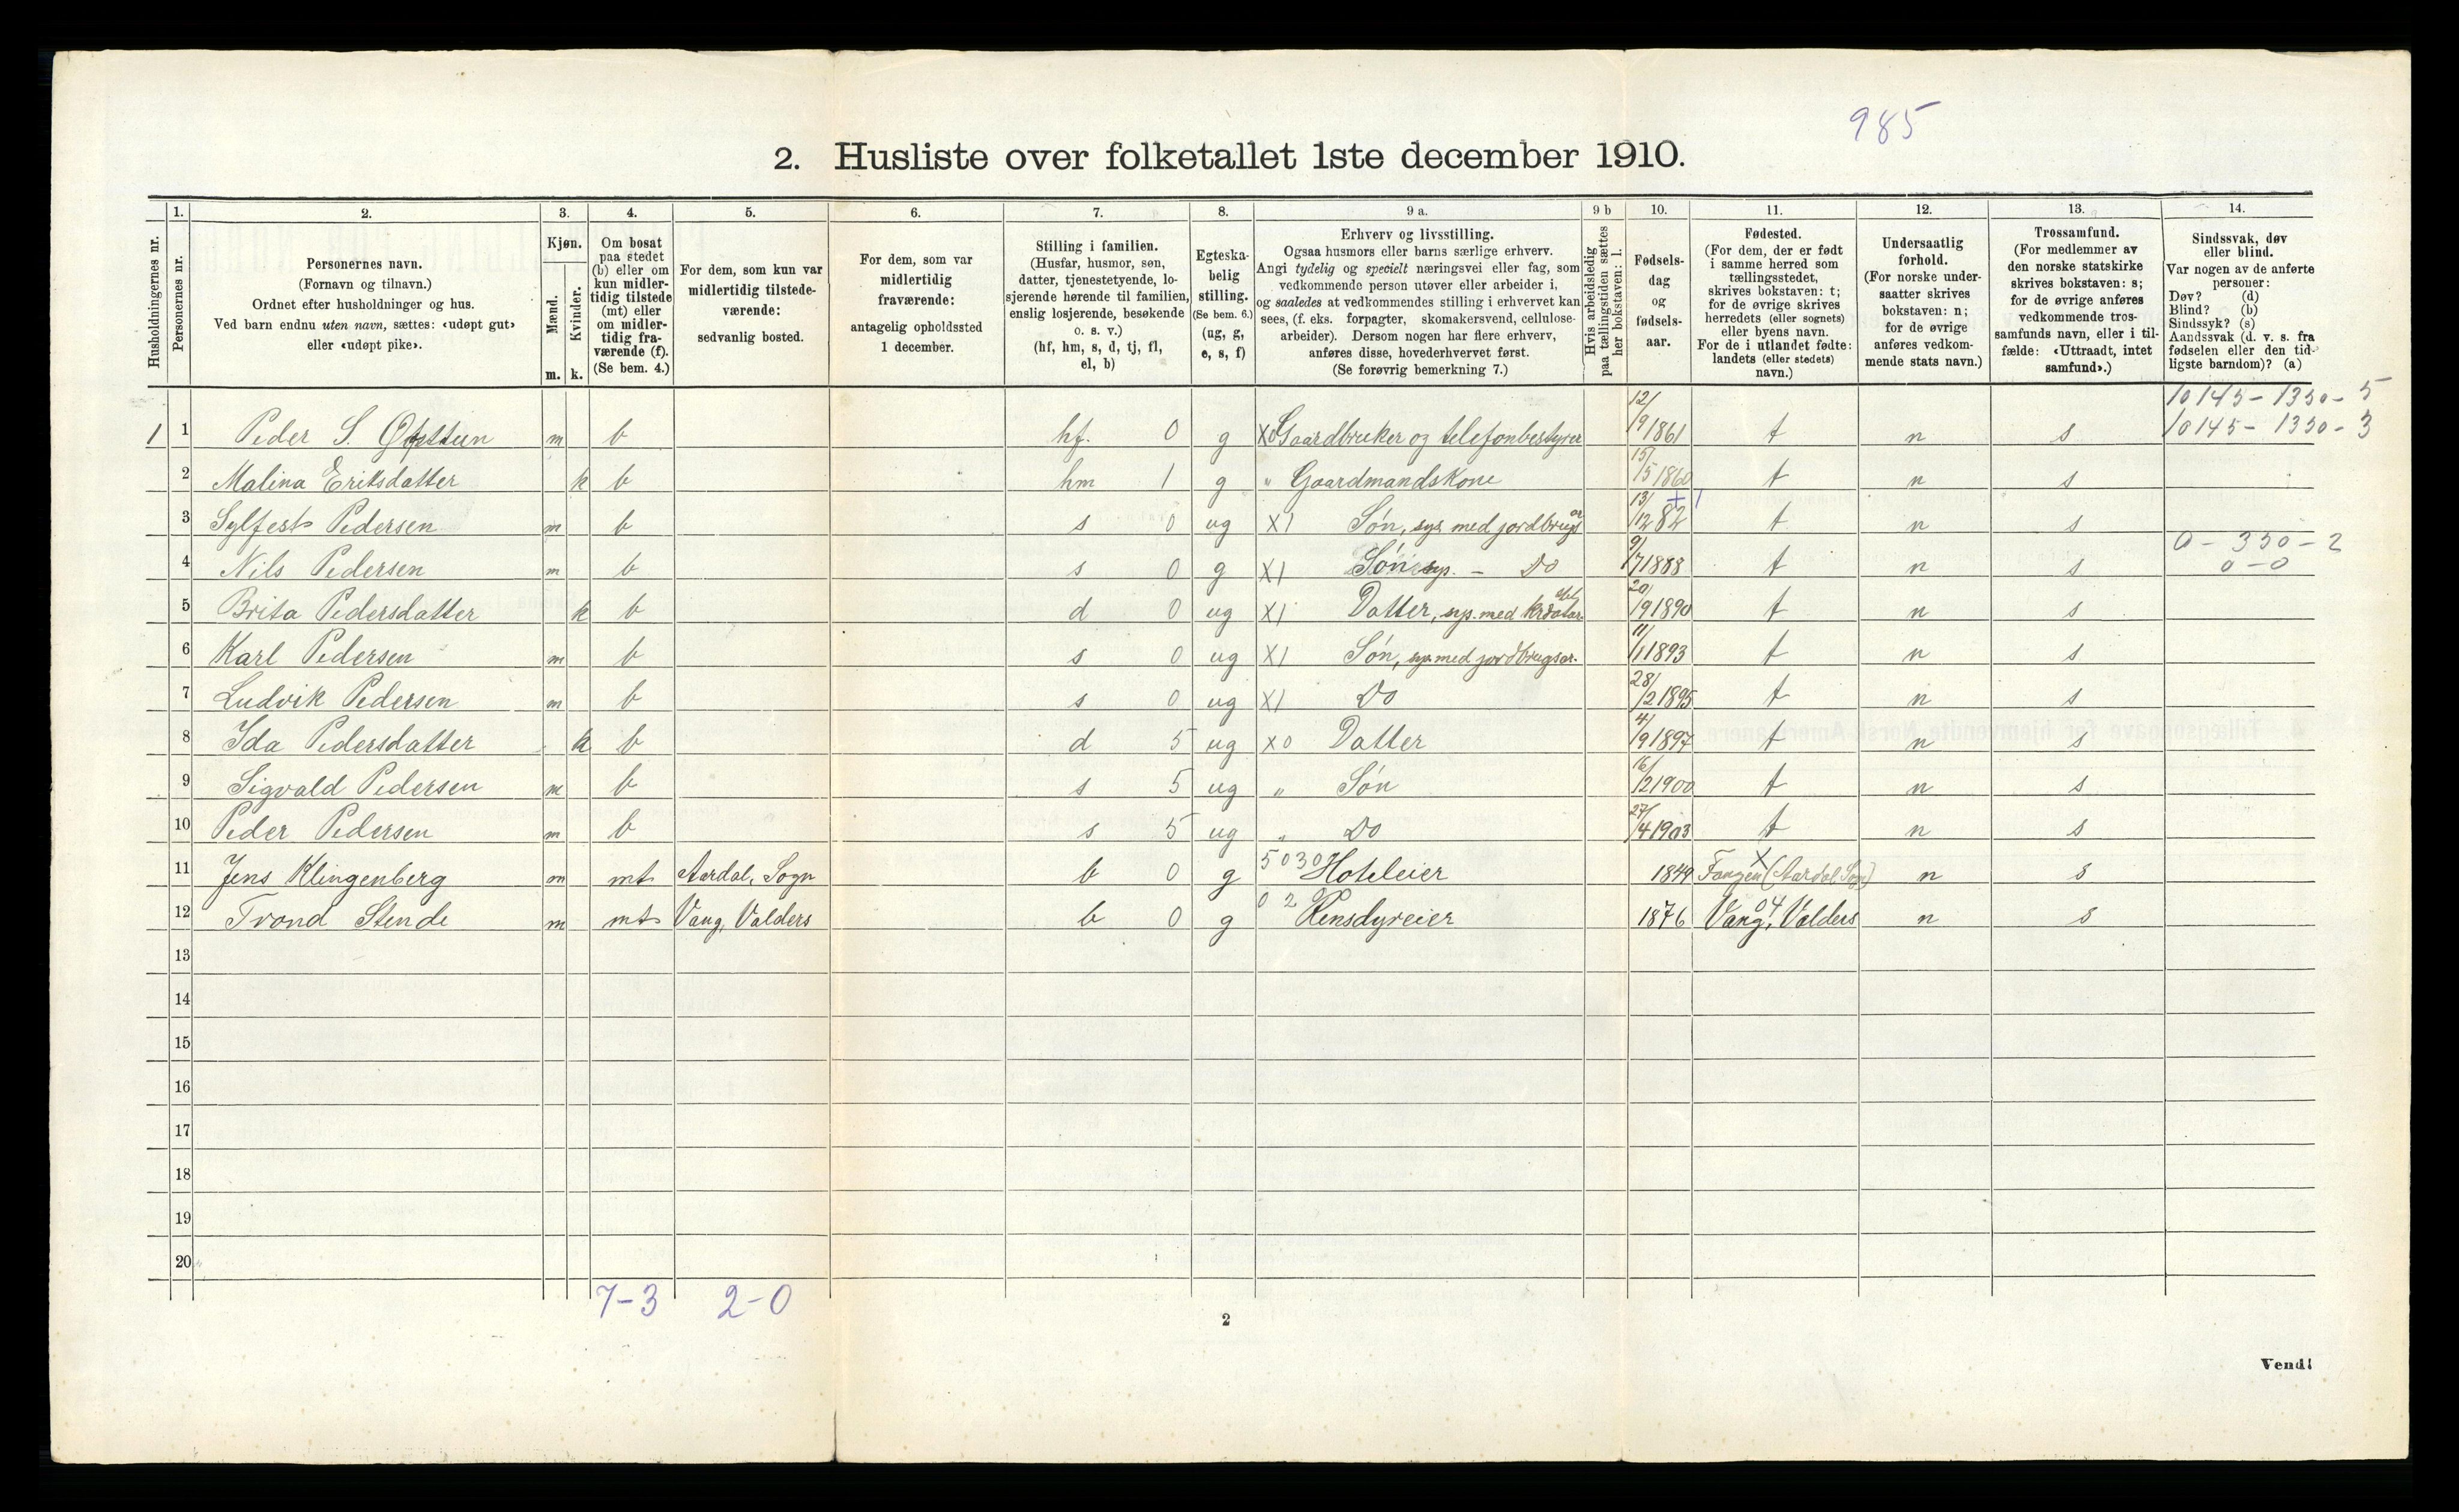 985
2. Husliste over folketallet 1ste december 1910.
1. 2. 3. 4. 5. 6. 7. 8. 9 a. 9 b 10. 11. 12. 13. 14.
Husholdningernes nr.
Personernes nr.
Personernes navn.
(Fornavn og tilnavn.)
Ordnet efter husholdninger og hus.
Ved barn endnu uten navn, sættes: «udøpt gut»
eller «udøpt pike».
Kjøn.
Mænd.
Kvinder.
m. k.
Om bosat
paa stedet
(b) eller om
kun midler-
tidig tilstede
(mt) eller
om midler-
tidig fra-
værende (f).
(Se bem. 4.)
For dem, som kun var
midlertidig tilstede-
værende:
sedvanlig bosted.
For dem, som var
midlertidig
fraværende:
antagelig opholdssted
1 december.
Stilling i familien.
(Husfar, husmor, søn,
datter, tjenestetyende, lo-
sjerende hørende til familien,
enslig losjerende, besøkende
o. s. v.)
(hf, hm, s, d, tj, fl,
el, b)
Egteska-
belig
stilling.
(Se bem. 6.)
(ug, g,
e, s, f)
Erhverv og livsstilling.
Ogsaa husmors eller barns særlige erhverv.
Angi tydelig og specielt næringsvei eller fag, som
vedkommende person utøver eller arbeider i,
og saaledes at vedkommendes stilling i erhvervet kan
sees, (f. eks. forpagter, skomakersvend, cellulose-
arbeider). Dersom nogen har flere erhverv,
anføres disse, hovederhvervet først.
(Se forøvrig bemerkning 7.)
Hvis arbeidsledig
paa tællingstiden sættes
her bokstaven: l.
Fødsels-
dag
og
fødsels-
aar.
Fødested.
(For dem, der er født
i samme herred som
tællingsstedet,
skrives bokstaven: t;
for de øvrige skrives
herredets (eller sognets)
eller byens navn.
For de i utlandet fødte:
landets (eller stedets)
navn.)
Undersaatlig
forhold.
(For norske under-
saatter skrives
bokstaven: n;
for de øvrige
anføres vedkom-
mende stats navn.)
Trossamfund.
(For medlemmer av
den norske statskirke
skrives bokstaven: s;
for de øvrige anføres
vedkommende tros-
samfunds navn, eller i til-
fælde: «Uttraadt, intet
samfund».)
Sindssvak, døv
eller blind.
Var nogen av de anførte
personer:
Døv? (d)
Blind? (b)
Sindssyk? (s)
Aandssvak (d. v. s. fra
fødselen eller den tid-
ligste barndom)? (a)
10145 - 1350 - 5
1 1 Peder S. m b hf. 0 g X0 Gaardbruker og telefonbestyrer 12/9 1861 t n s 10145 - 1350 - 3
2 Malina Eriksdatter k b hm 1 g " Gaardmandskone 15/5 1860 t n s
3 Sylfest Pedersen m b s 0 ug X1 Søn, sys. med jordbrugsar 13/12 82 t n s
0 - 350 - 2
4 Nils Pedersen m b s 0 g X1 Søn sys. - Do 9/7 1888 t n s 0 - 0
5 Brita Pedersdatter k b d 0 ug X1 Datter, sys. med 20/9 1890 t n s
6 Karl Pedersen m b s 0 ug X1 Søn, sys. med jordbrugsar. 11/1 1893 t n s
7 Ludvik Pedersen m b s 0 ug X1 Do 28/2 1895 t n s
8 Ida Pedersdatter k b d 5 ug X0 Datter 4/9 1897 t n s
9 Sigvald Pedersen m b s 5 ug " Søn 16/2 1900 t n s
10 Peder Pedersen m b s 5 ug " Do 27/4 1903 t n s
11 Jens Klingenberg m mt Aardal, Sogn b 0 g 5030 Hoteleier 1849 (Aardal Sogn) X n s
12 Trond Stende m mt Vang, Valders b 0 g 0 2 Rensdyreier 1876 Vang, Valders 04 n s
13
14
15
16
17
18
19
20
7-3 2-0
2
Vend!